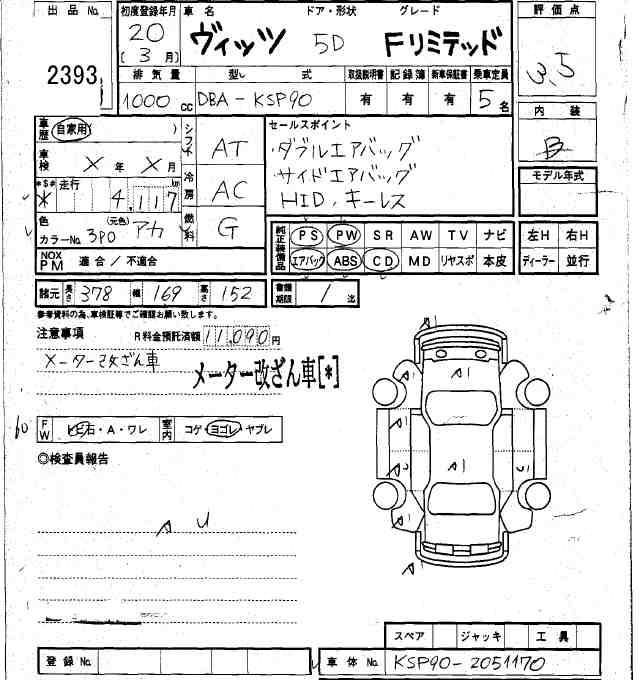 出品No. 初度登録年月 車名 ドア・形状 グレード 評価点
2393 20 (3月) ヴィッツ 5D Fリミテッド 3.5
排気量 型式 取扱説明書 記録簿 新車保証書 乗車定員
1000cc DBA-KSP90 有 有 有 5名
内装
B
車歴 自家用( ) シフト AT
セールスポイント
・ダブルエアバッグ
・サイドエアバッグ
HID、キーレス
モデル年式
車検 X年 X月 冷房 AC
*$# 走行 km
* 4,117
色 (元色) アカ 燃料 G
カラーNo. 3P0
純正装備品 PS PW SR AW TV ナビ 左H 右H
エアバック ABS CD MD リヤスポ 本皮 ディーラー 並行
NOX PM 適合/不適合
諸元 長さ 378 幅 169 高さ 152 書類期限 / 迄
参考資料の為、車検証等でご確認お願い致します。
注意事項 R料金預託済額 11,090
メーター改ざん車
メーター改ざん車[*]
FW トビ石・A・ワレ 室内 コゲ・ヨゴレ・ヤブレ
◎検査員報告
A U
A1
A1
A1
A1
A1
A1
スペア ジャッキ 工具
登録No. 車体No. KSP90-2051170